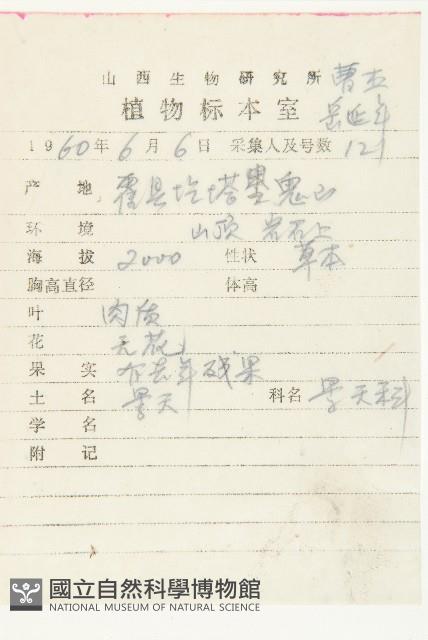 山西生物研究所 曹杰
植物标本室 岳延年
1960年6月6日 采集人及号数 121
产地 霍县圪塔 鬼山
环境 山顶 岩石上
海拔 2000 性状 草本
胸高直径 体高
叶 肉质
花 无花
果实 有去年残果
土名 景天 科名 景天科
学名
附记
國立自然科學博物館
NATIONAL MUSEUM OF NATURAL SCIENCE